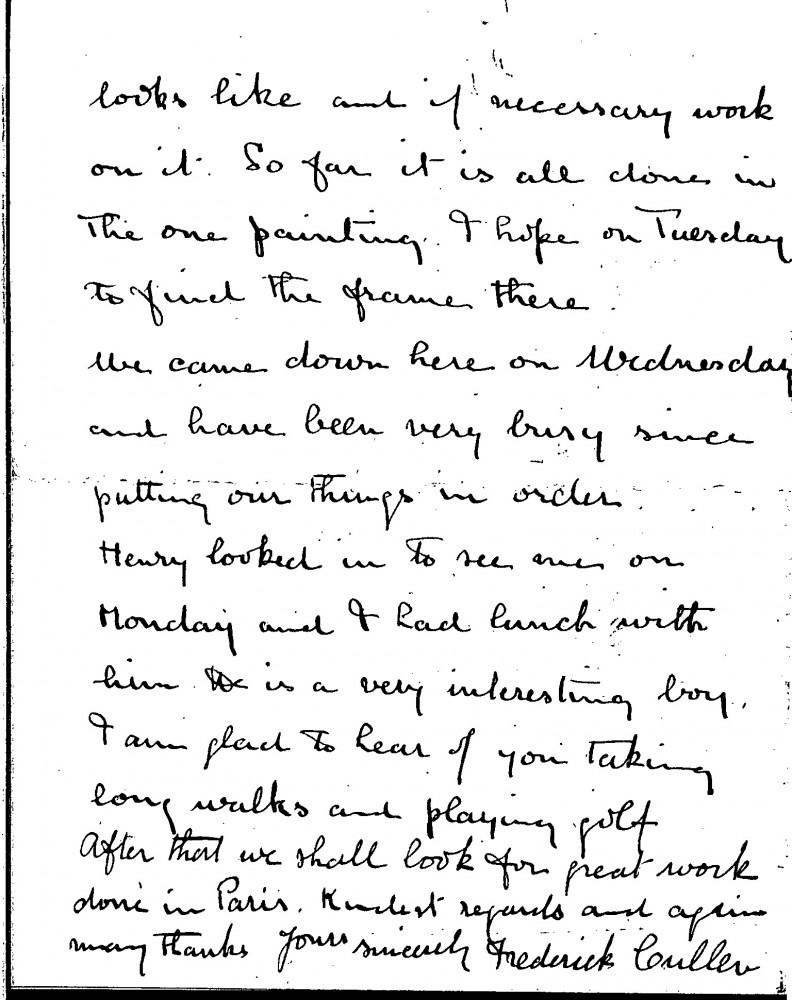 looks like and if necessary work
on it. So far it is all done in
the one painting. I hope on Tuesday
to find the frame there.
We came down here on Wednesday
and have been very busy since
putting our things in order.
Henry looked in to see me on
Monday and I had lunch with
him He is a very interesting boy.
I am glad to hear of you taking
long walks and playing golf
After that we shall look for great work
done in Paris. Kindest regards and again
many thanks Yours sincerely Frederick Cullen